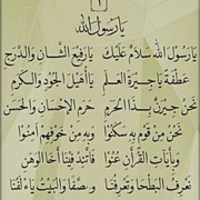 ١
يَارَسُولَ اللهِ
يَارَسُولَ اللهِ سَلَامٌ عَلَيْكَ يَارَفِيعَ الشَّانِ وَالدَّرَجِ
عَطْفَةً يَاجِيرَةَ الْعَلَمِ يَاأُهَيْلَ الْجُودِ وَالْكَرَمِ
نَحْنُ جِيرَنٌ بِذَا الْحَرَمِ حَرَمِ الْإِحْسَانِ وَالْحَسَنِ
نَحْنُ مِنْ قَوْمٍ بِهِ سَكَنُوْا وَبِهِ مِنْ خَوْفِهِمْ اٰمَنُوْا
وَبِأٰيَاتِ الْقُرْأٰنِ عُنُوْا فَاتَّئِدْ فِيْنَا أَخَا الْوَهَنِ
نَعْرِفُ الْبَطْحَا وَتَعْرِفُنَا وَالصَّفَا وَالْبَيْتُ يَأْلَفُنَا